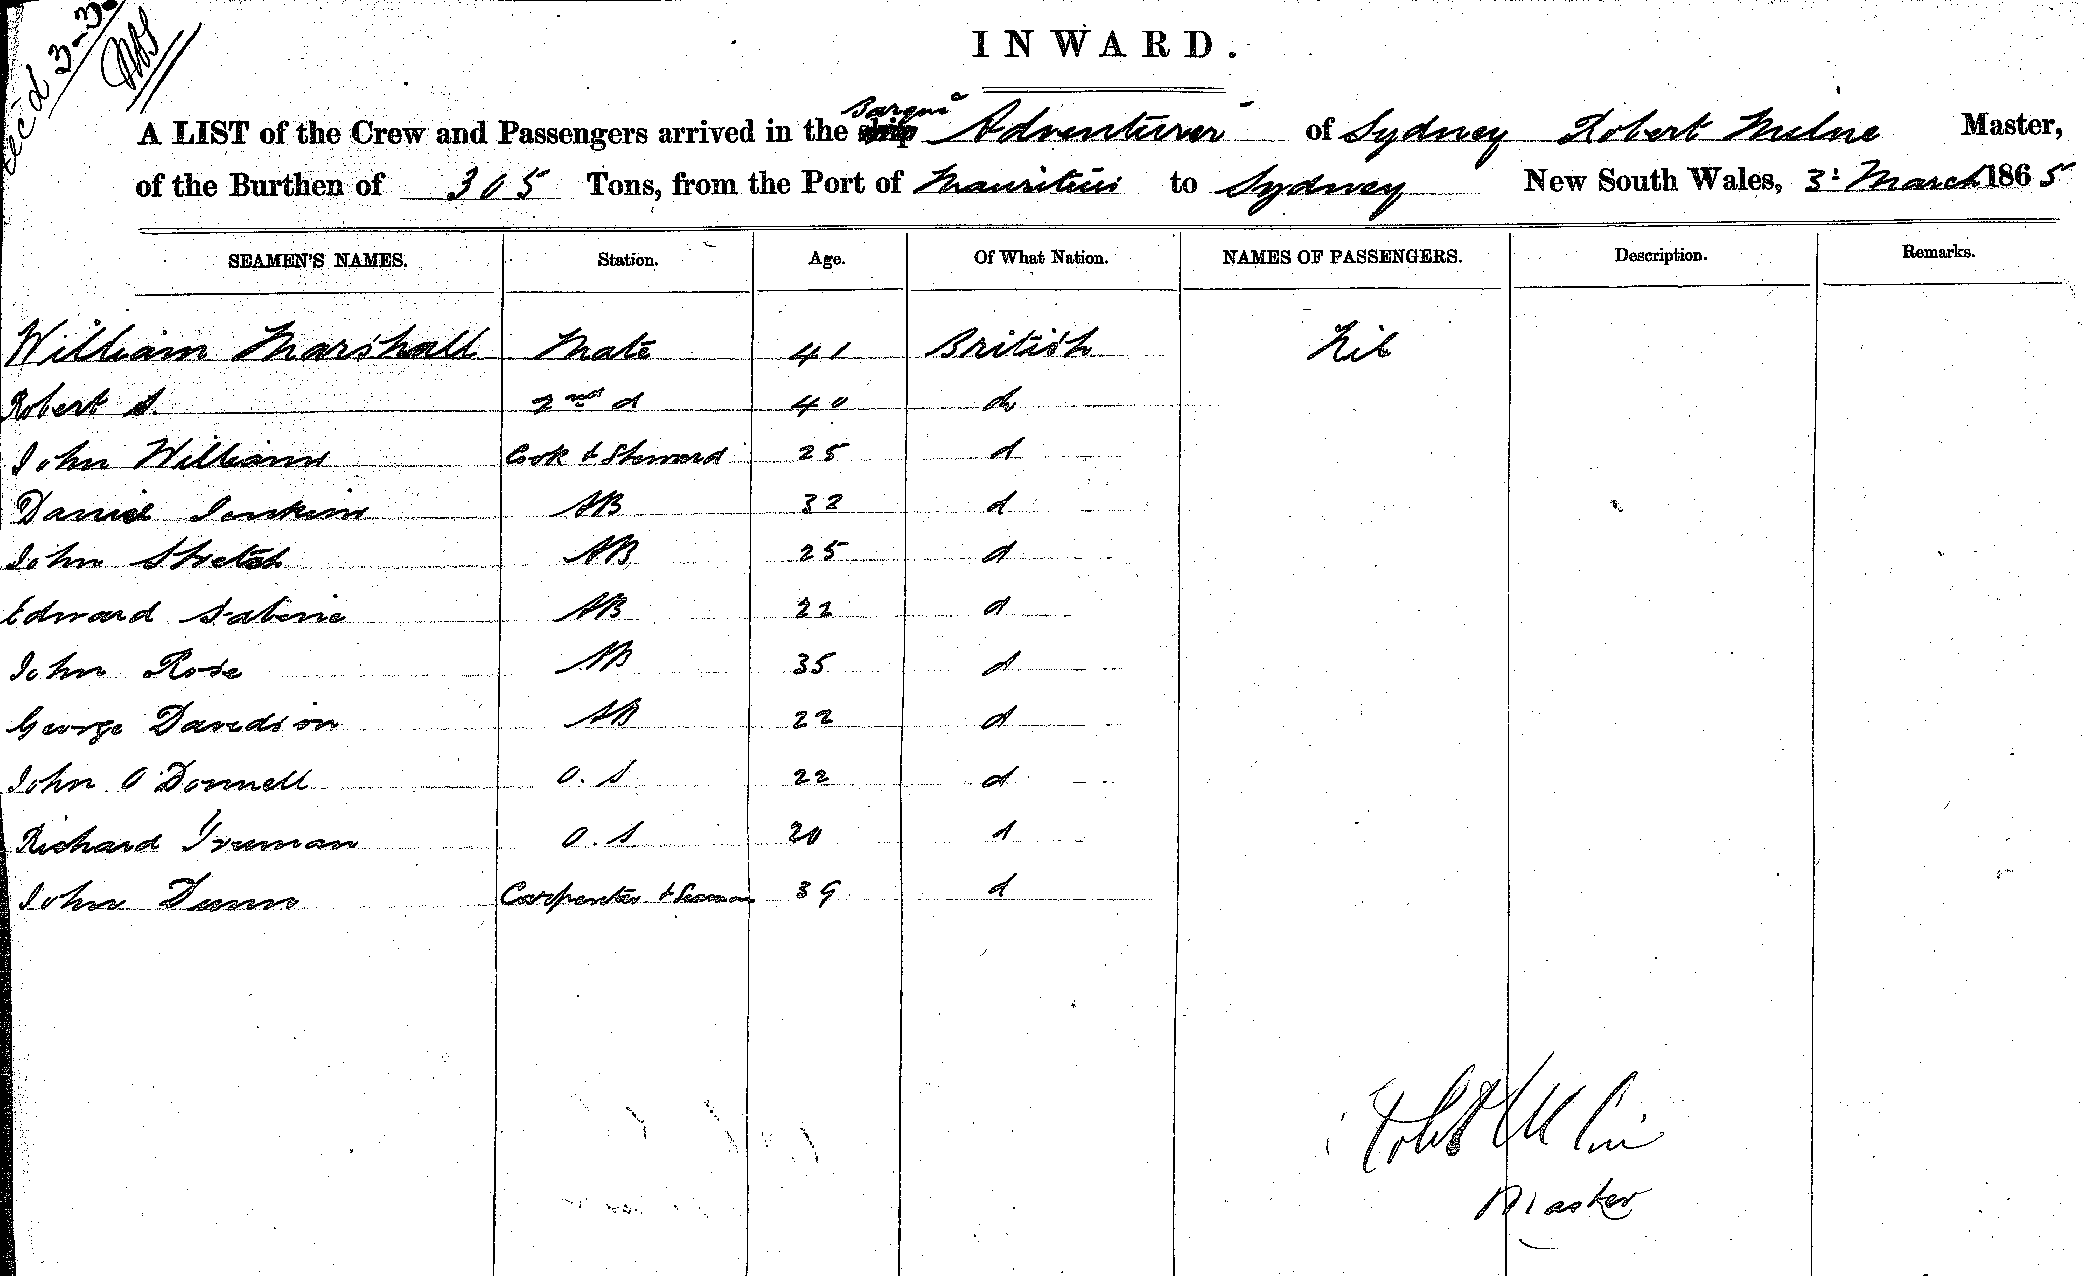 rec'd 3-3
INWARD.
A LIST of the Crew and Passengers arrived in the ship Barque Adventurer of Sydney Robert Milne Master,
of the Burthen of 305 Tons, from the Port of Mauritius to Sydney New South Wales, 3d March 1865
SEAMEN'S NAMES. Station. Age. Of What Nation. NAMES OF PASSENGERS. Description. Remarks.
William Marshall Mate 41 British Nil
Robert S. 2nd d 40 do
John Williams Cook & Steward 25 d
Daniel Jenkins AB 32 d
John Stretch AB 25 d
Edward Sabine AB 22 d
John Rose AB 35 d
George Davidson AB 22 d
John O'Donnell O.S 22 d
Richard Truman O.S 20 d
John Dunn Carpenter & Seaman 39 d
Robt Milne
Master